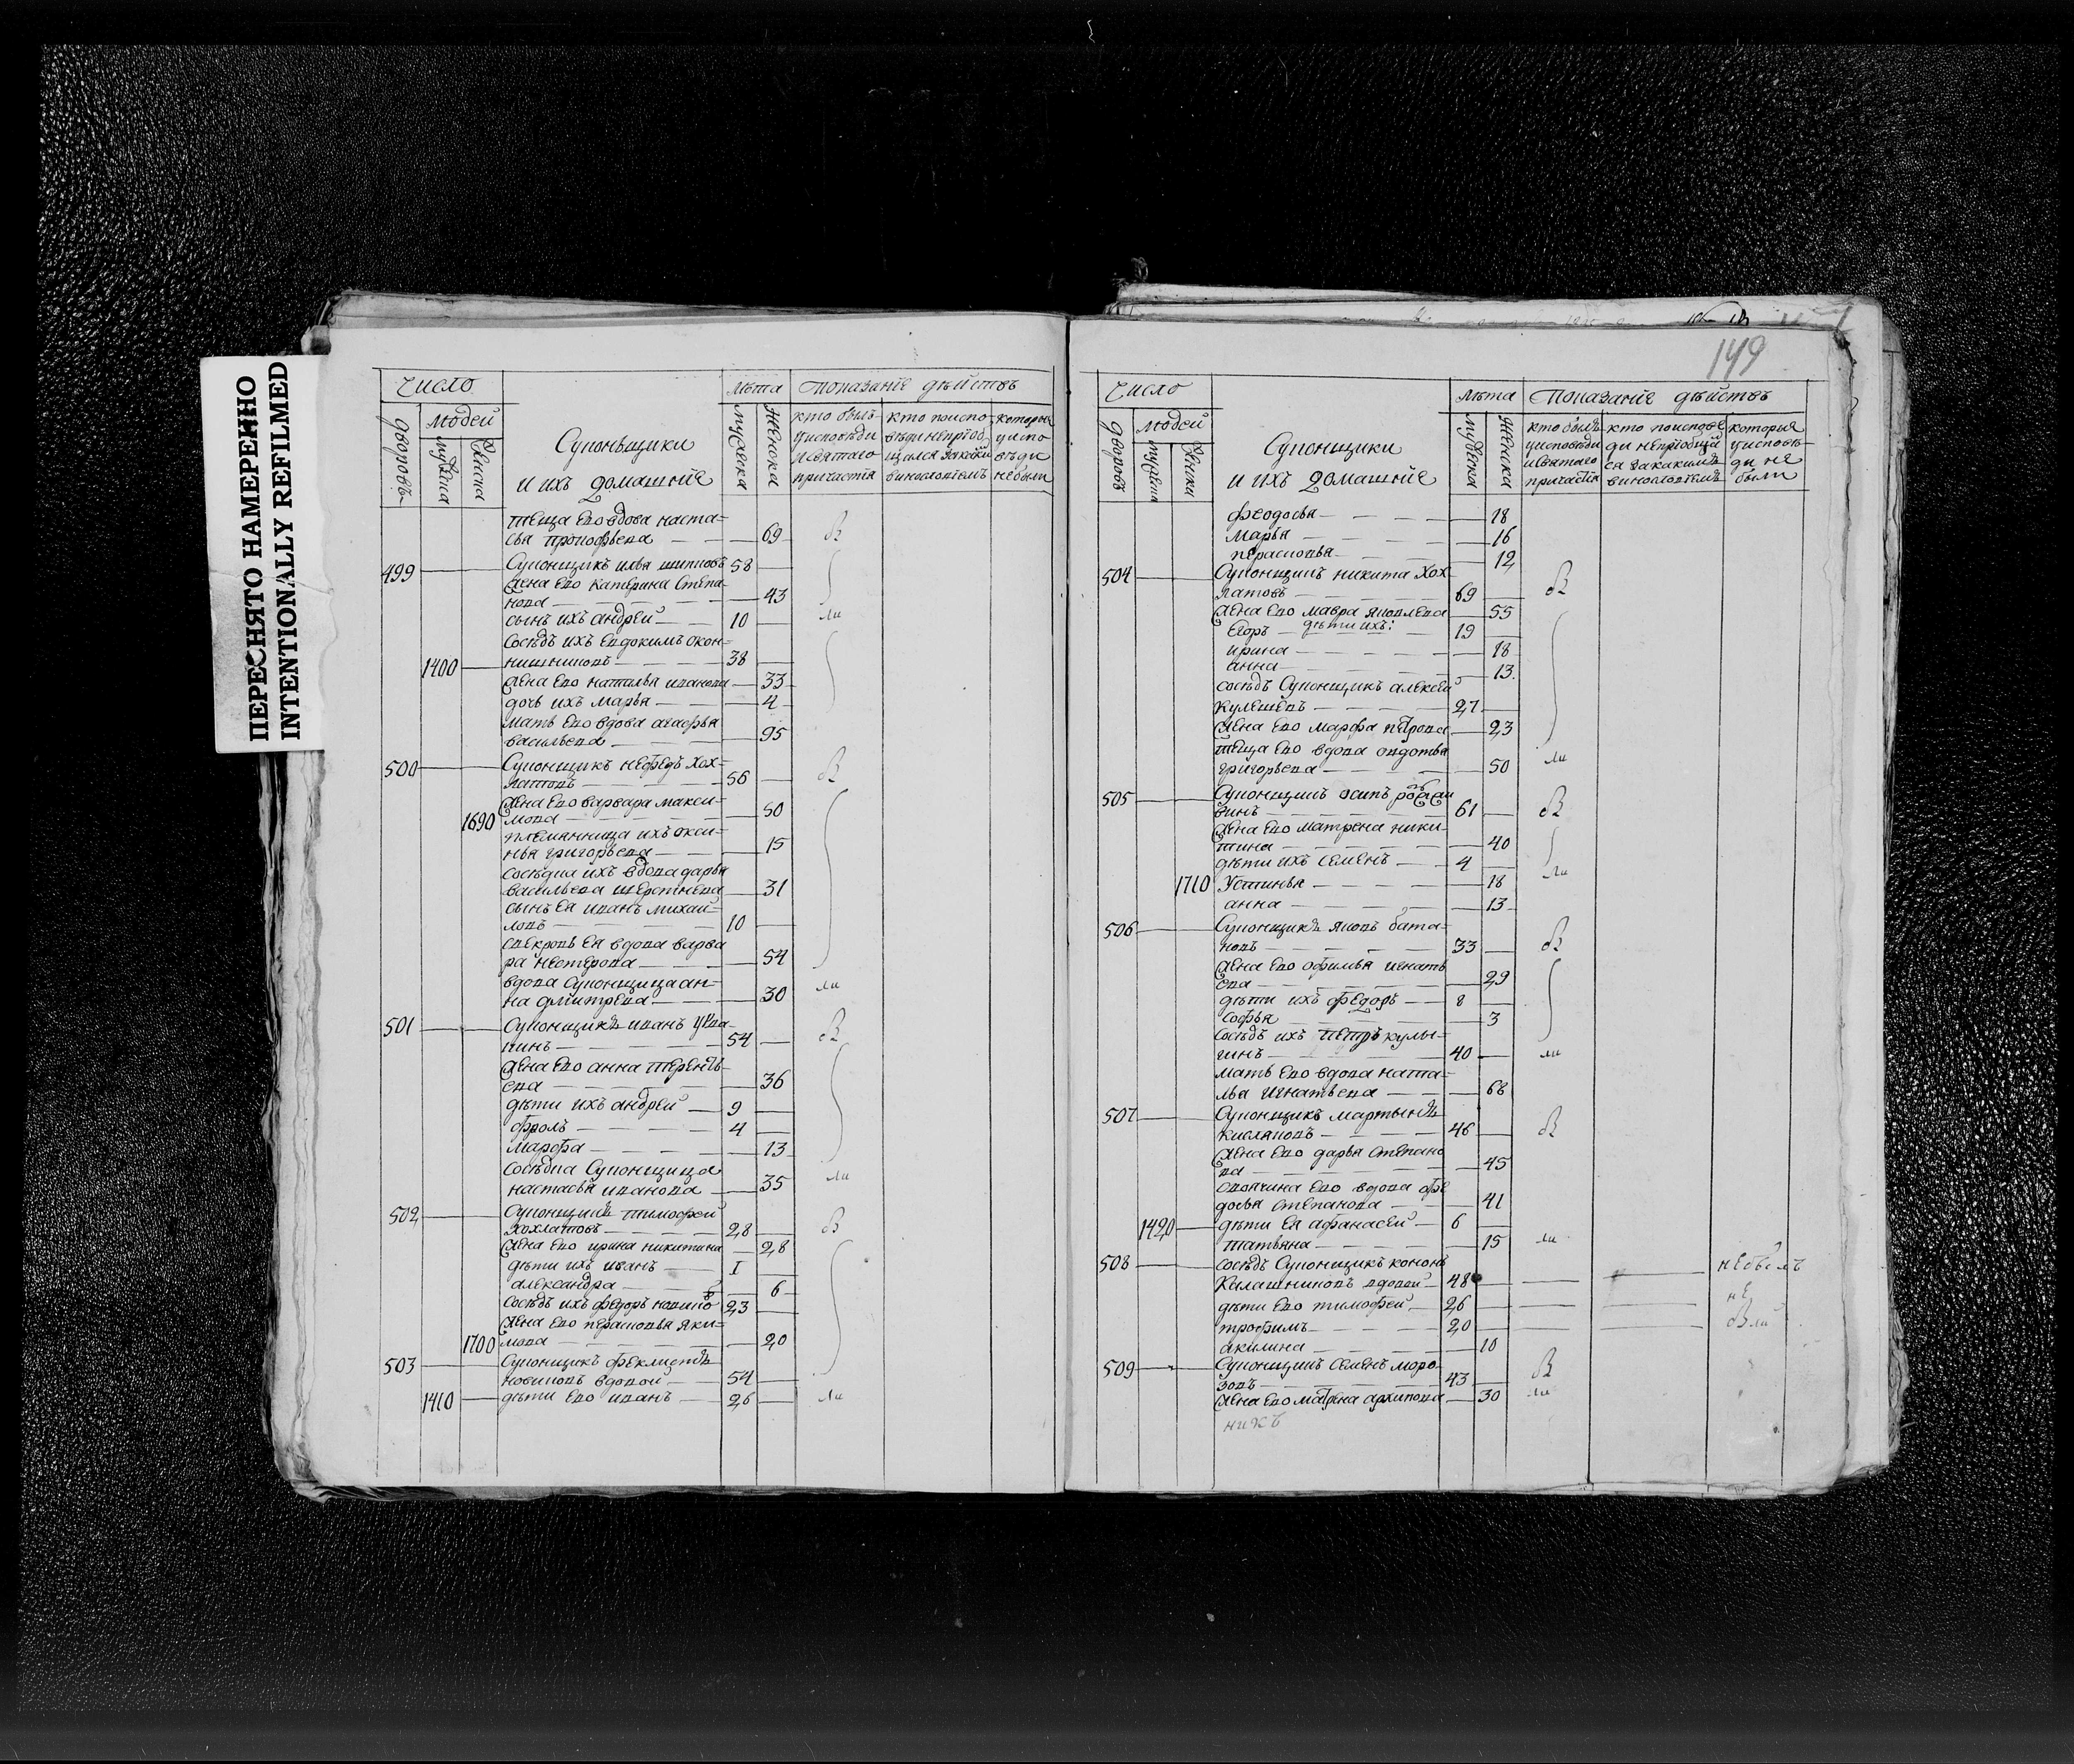 ПЕРЕСНЯТО НАМЕРЕННО
INTENTIONALLY REFILMED
Число
людей
дворовъ
мужеска
женска
Суконьщики
и ихъ домашнїе
лѣта
мужеска
женска
показанїе дѣйствъ
кто былъ
у исповѣди
и святаго
причастїя
кто по испо
вѣди не прїоб
щался за какой
виносло­вїемъ
которые
у испо
вѣди
не были
теща ево вдова наста=
сья прокофьева 69 В
499 Суконщикъ илья шипковъ 58
жена ево катерина степа
нова 43
сынъ ихъ андрей 10 ли
сосѣдъ ихъ евдокимъ окон=
1400 нишниковъ 38
жена ево наталья иванова 33
дочь ихъ марья 4
мать ево вдова агафья
васильева 95
500 Суконщикъ нефедъ хох=
латовъ 56 В
жена ево варвара макси=
1690 мова 50
племянница ихъ окси=
нья григорьева 15
сосѣдка ихъ вдова дарья
васильева шерстнева 31
сынъ ея иванъ михай=
ловъ 10
свекровь ея вдова варва
ра нестерова 54
вдова суконщица ан=
на дмитрева 30 ли
501 Суконщикъ иванъ
кинъ 54 В
жена ево анна терентъ
ева 36
дѣти ихъ андрей 9
фролъ 4
марфа 13
сосѣдка суконщица
настасья иванова 35 ли
502 Суконщикъ тимофей
хохлатовъ 28 В
жена ево ирина никитина 28
дѣти ихъ иванъ 1
александра 6
сосѣдъ ихъ федоръ новико 23
жена ево парасковья яки=
1700 мова 20
503 Суконщикъ феклистъ
новиковъ вдовой 54
1410 дѣти ево иванъ 26 ли
149
Число
людей
дворовъ
мужеска
женски
Суконщики
и ихъ домашнїе
лѣта
мужеска
женска
показанїе дѣйствъ
кто былъ
у исповѣди
и святаго
причастїя
кто по исповѣ
ди не прїобща
ся за какимъ
винословїемъ
которые
у исповѣ
ди не
были
феодосья 18
марья 16
парасковья 12
504 Суконщикъ никита хох
латовъ 69 В
жена ево мавра яковлева 55
дѣти ихъ:
егоръ 19
ирина 18
анна 13
сосѣдъ суконщикъ алексей
кулешевъ 27
жена ево марфа петрова 23
теща ево вдова овдотья
григорьева 50 ли
505 Суконщикъ осипъ
винъ 61 В
жена ево матрена ники
тина 40
дѣти ихъ семенъ 4 ли
1710 устинья 18
анна 13
506 Суконщикъ яковъ бата=
ковъ 33 В
жена ево офимья игнатъ
ева 29
дѣти ихъ федоръ 8
софья 3
сосѣдъ ихъ петръ кулы=
гинъ 40 ли
мать ево вдова ната=
лья игнатьева 68
507 Суконщикъ мартынъ
кисляковъ 46 В
жена ево дарья степано
ва 45
своячина ево вдова фе
досья степанова 41
1420 дѣти ея афанасей 6
татьяна 15 ли
508 сосѣдъ суконщикъ кононъ
калашниковъ вдовой 48 не былъ
дѣти ево тимофей 26 не
трофимъ 20 были
акилина 10
509 Суконщикъ семенъ моро
зовъ 43 В
жена ево матрена архипова 30 ли
никъ